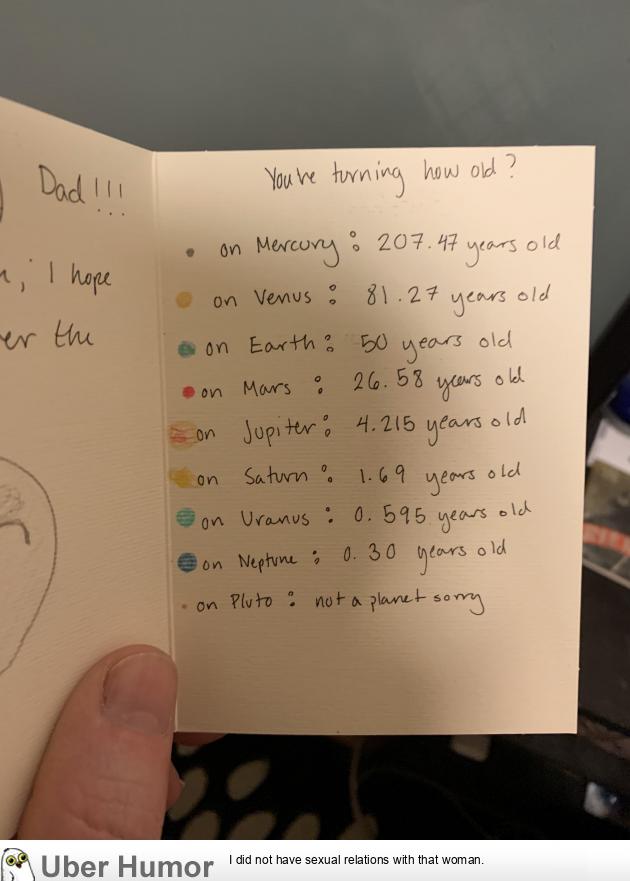 Dad!!!
, I hope
the
You're turning how old?
on Mercury: 207.47 years old
on Venus: 81.27 years old
on Earth: 50 years old
on Mars: 26.58 years old
on Jupiter: 4.215 years old
on Saturn: 1.69 years old
on Uranus: 0.595 years old
on Neptune: 0.30 years old
on Pluto: not a planet sorry
Uber Humor
I did not have sexual relations with that woman.